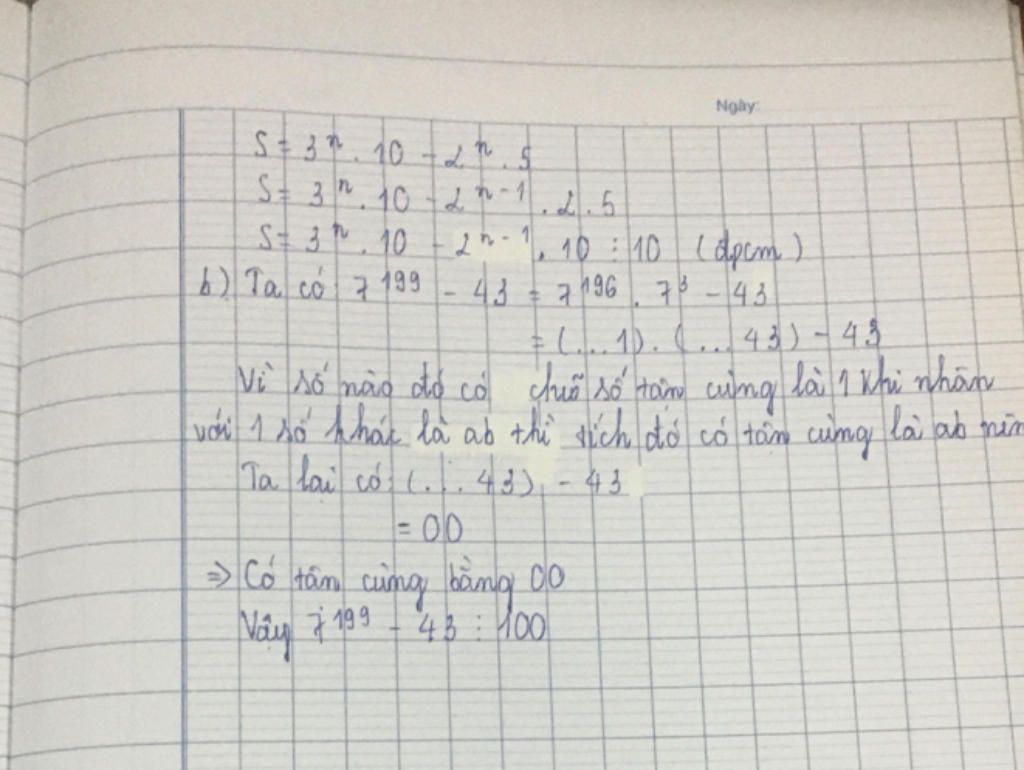 Ngày:
S = 3ⁿ . 10 - 2ⁿ . 5
S = 3ⁿ . 10 - 2ⁿ⁻¹ . 2 . 5
S = 3ⁿ . 10 - 2ⁿ⁻¹ . 10 ⋮ 10 (đpcm)
b) Ta có 7¹⁹⁹ - 43 = 7¹⁹⁶ . 7³ - 43
= (...1) . (... 43) - 43
Vì số nào đó có chữ số tân cùng là 1 khi nhân
với 1 số khác là ab thì tích đó có tân cùng là ab nên
Ta lại có (... 43) - 43
= 00
=> Có tân cùng bằng 00
Vậy 7¹⁹⁹ - 43 ⋮ 100